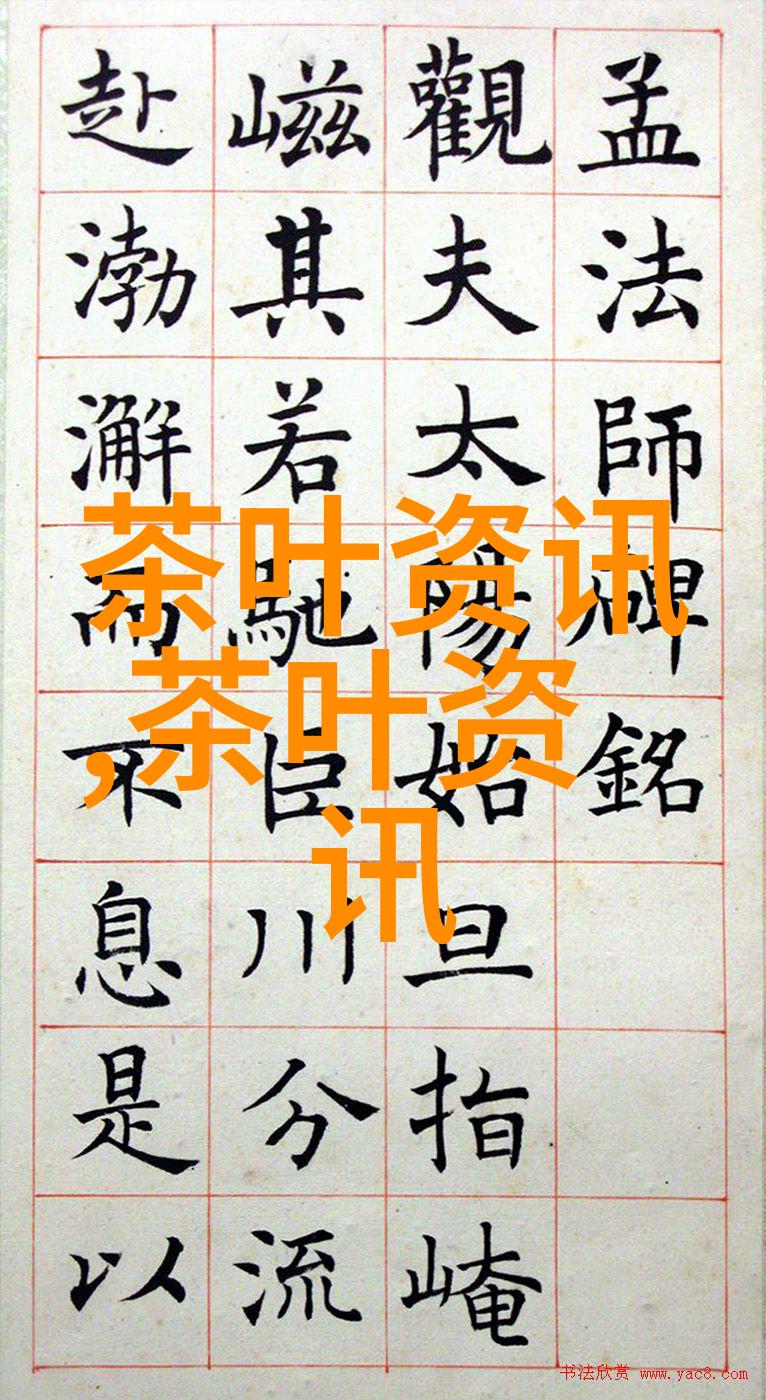 孟法師碑銘
觀夫太陽始旦指崦
嵫其若馳巨川分流
赴渤澥而不息是以
茶叶资讯
,茶叶资
讯
书法欣赏 www.yac8.com